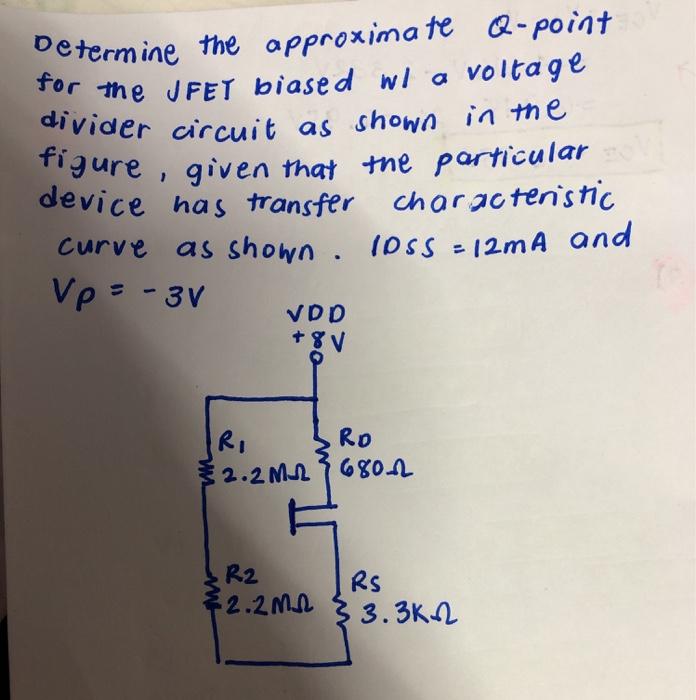 Determine the approximate Q-point
for the JFET biased w/ a voltage
divider circuit as shown in the
figure, given that the particular
device has transfer characteristic
curve as shown. IDSS = 12mA and
Vp = - 3V
VDD
+ 8V
R1
2.2MΩ
RD
680Ω
R2
2.2MΩ
RS
3.3KΩ